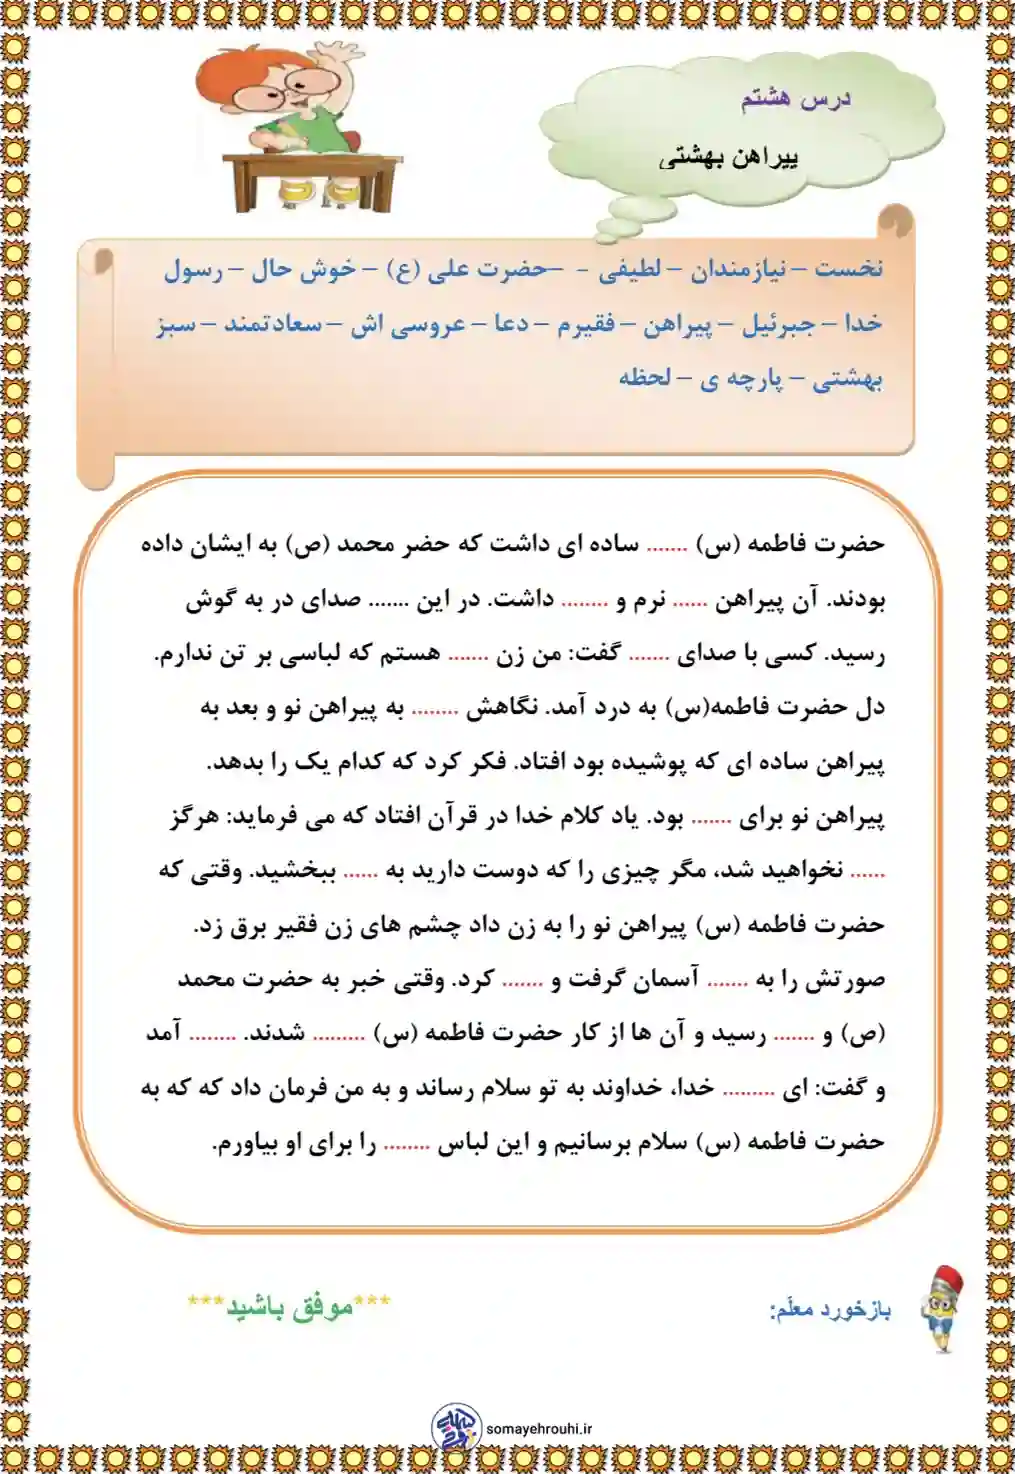 درس هشتم
پیراهن بهشتی
نخست – نیازمندان – لطیفی - –حضرت علی (ع) – خوش حال – رسول
خدا – جبرئیل – پیراهن – فقیرم – دعا – عروسی اش – سعادتمند – سبز
بهشتی – پارچه ی – لحظه
حضرت فاطمه (س) ....... ساده ای داشت که حضر محمد (ص) به ایشان داده
بودند. آن پیراهن ...... نرم و ........ داشت. در این ....... صدای در به گوش
رسید. کسی با صدای ....... گفت: من زن ....... هستم که لباسی بر تن ندارم.
دل حضرت فاطمه(س) به درد آمد. نگاهش ........ به پیراهن نو و بعد به
پیراهن ساده ای که پوشیده بود افتاد. فکر کرد که کدام یک را بدهد.
پیراهن نو برای ....... بود. یاد کلام خدا در قرآن افتاد که می فرماید: هرگز
...... نخواهید شد، مگر چیزی را که دوست دارید به ...... ببخشید. وقتی که
حضرت فاطمه (س) پیراهن نو را به زن داد چشم های زن فقیر برق زد.
صورتش را به ....... آسمان گرفت و ....... کرد. وقتی خبر به حضرت محمد
(ص) و ....... رسید و آن ها از کار حضرت فاطمه (س) ......... شدند. ........ آمد
و گفت: ای ......... خدا، خداوند به تو سلام رساند و به من فرمان داد که که به
حضرت فاطمه (س) سلام برسانیم و این لباس ........ را برای او بیاورم.
بازخورد معلّم:
***موفق باشید***
somayehrouhi.ir